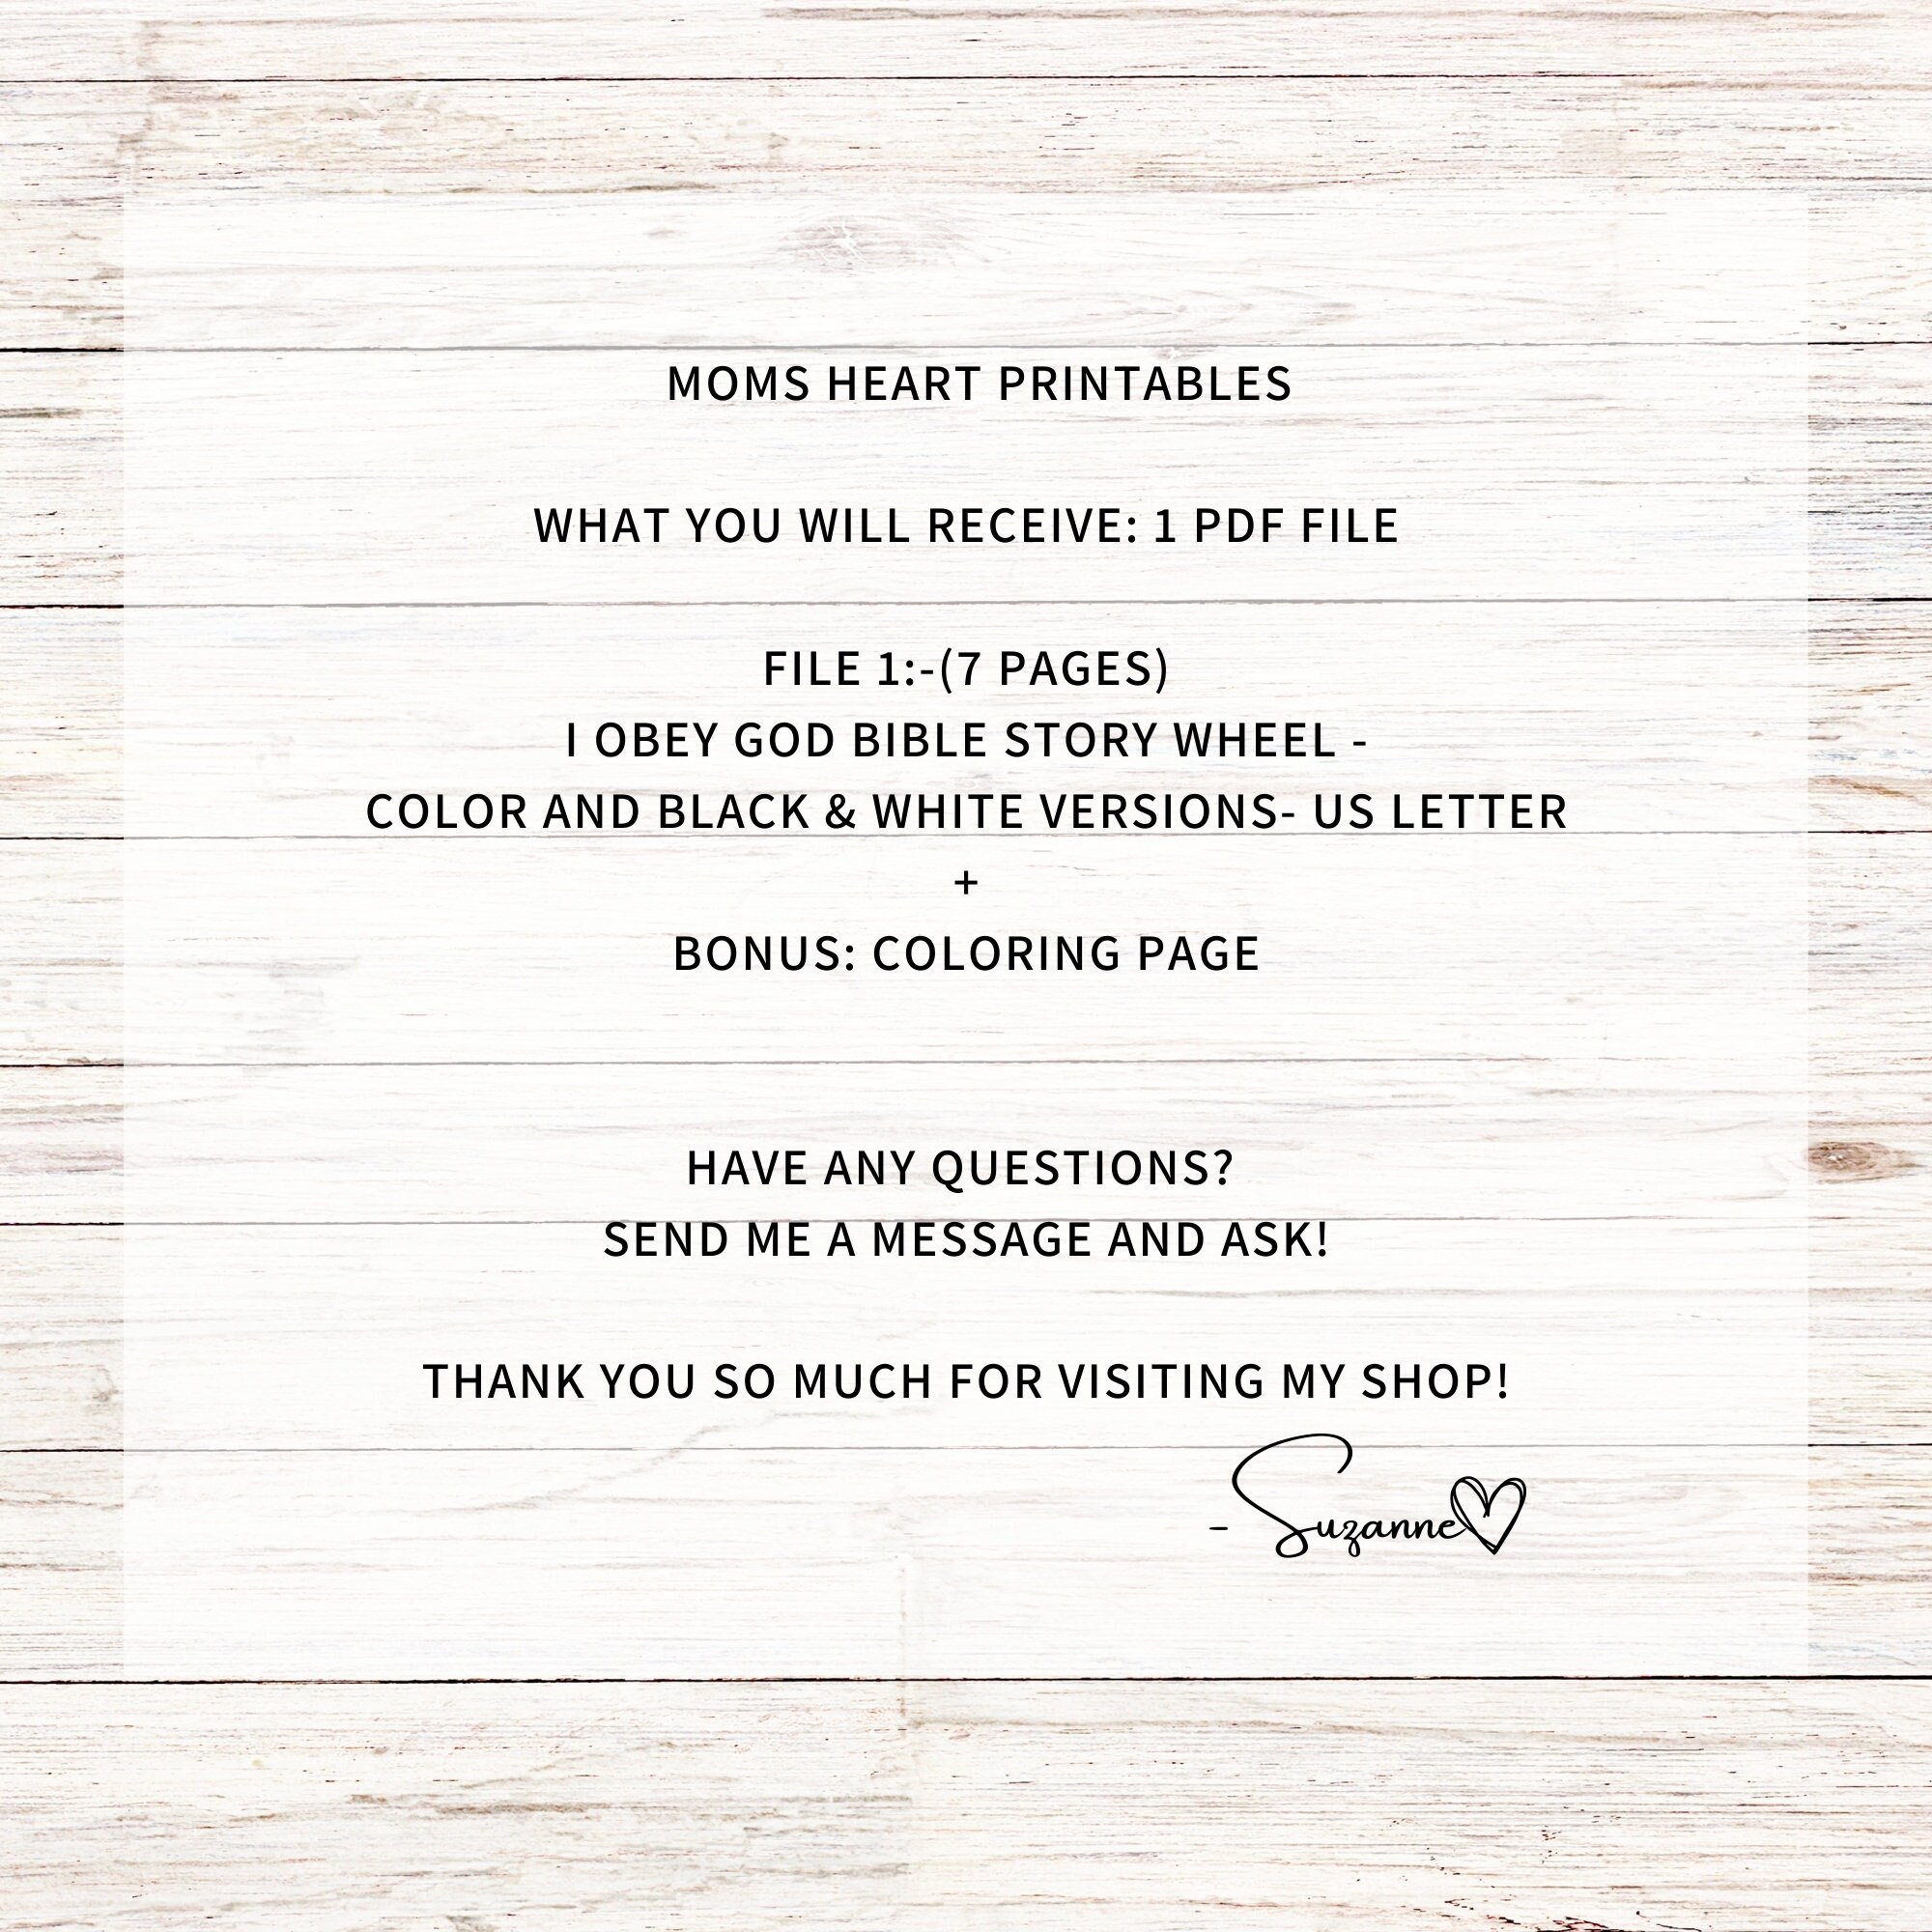 MOMS HEART PRINTABLES
WHAT YOU WILL RECEIVE: 1 PDF FILE
FILE 1:-(7 PAGES)
I OBEY GOD BIBLE STORY WHEEL -
COLOR AND BLACK & WHITE VERSIONS- US LETTER
+
BONUS: COLORING PAGE
HAVE ANY QUESTIONS?
SEND ME A MESSAGE AND ASK!
THANK YOU SO MUCH FOR VISITING MY SHOP!
- Suzanne